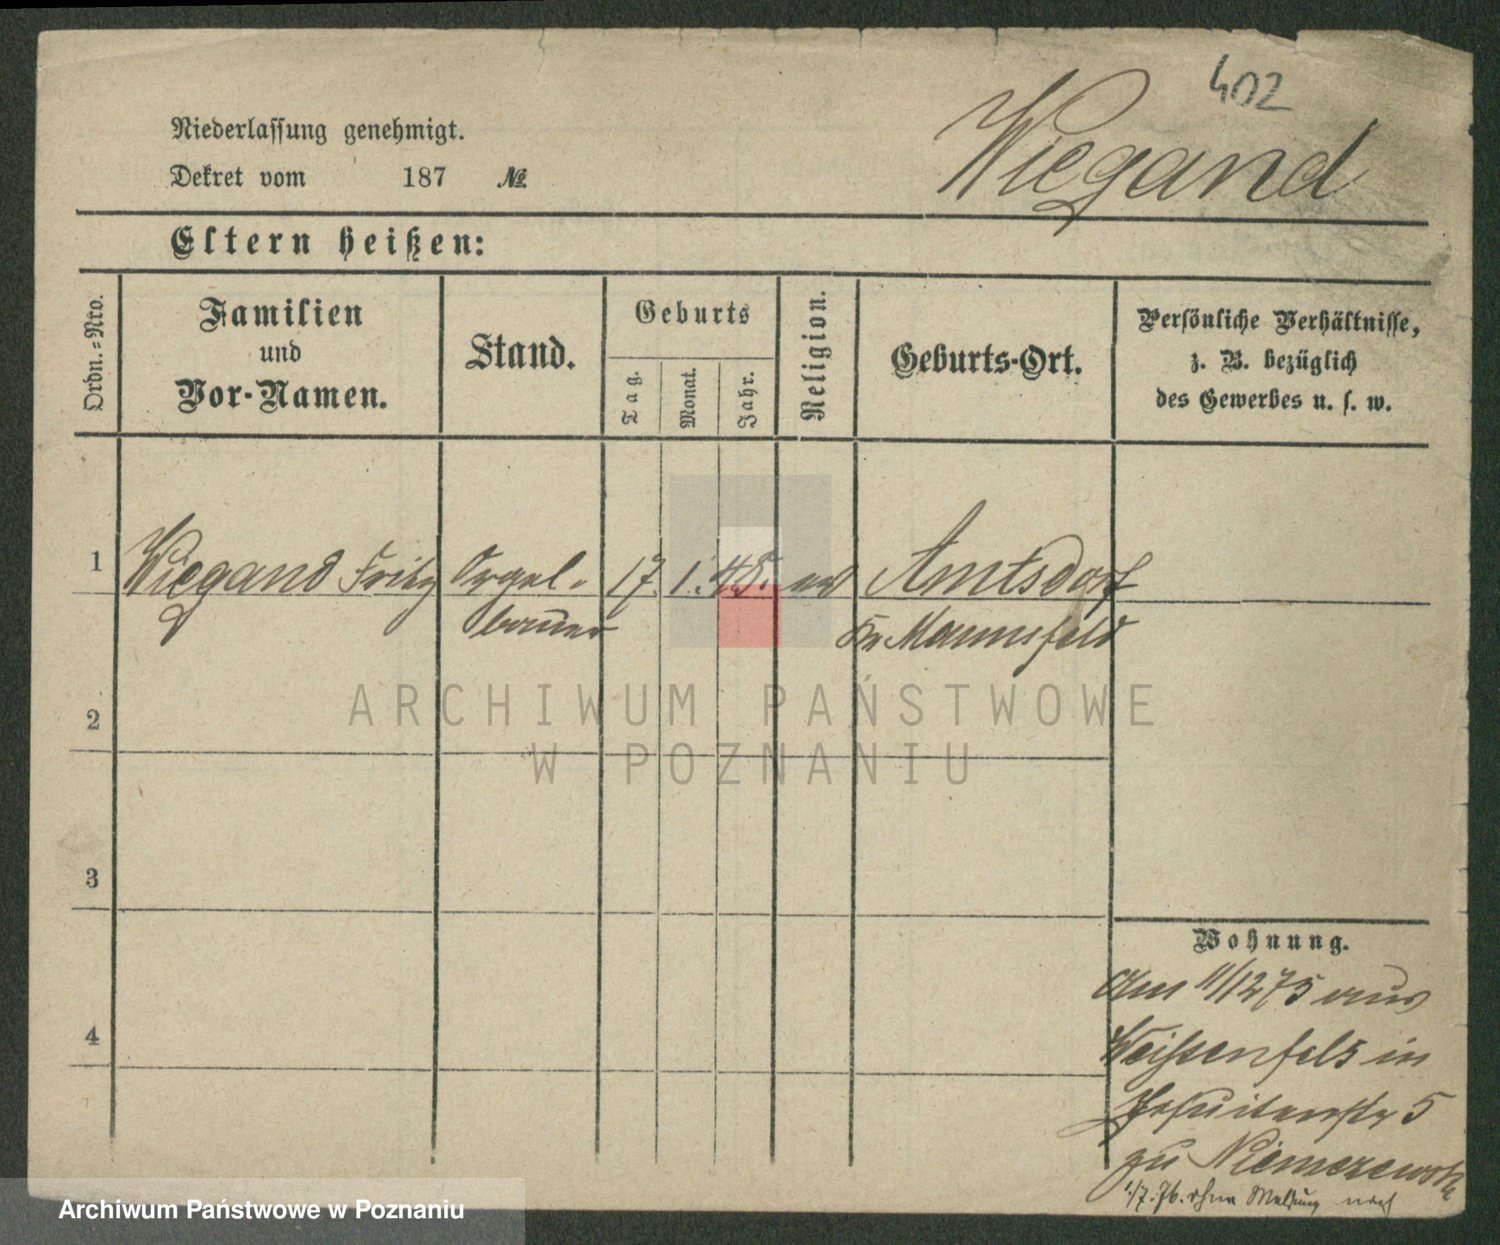 402
Wiegand
Niederlassung genehmigt.
Dekret vom 187 №
Eltern heißen:
Ordn.-Nro.
Familien und Vor-Namen.
Stand.
Geburts
Tag.
Monat.
Jahr.
Religion.
Geburts-Ort.
Persönliche Verhältnisse,
z. B. bezüglich
des Gewerbes u. s. w.
1 Wiegand Fritz Orgel- 17. 1. 45. ev Amtsdorf
bauer Kr Mannsfeld
2
3
4
Wohnung.
Am 11/12 75 aus
Weißenfels in
Jesuitenstr 5
zu
1/7. 76. ohne Meldung nach
ARCHIWUM PAŃSTWOWE
W POZNANIU
Archiwum Państwowe w Poznaniu